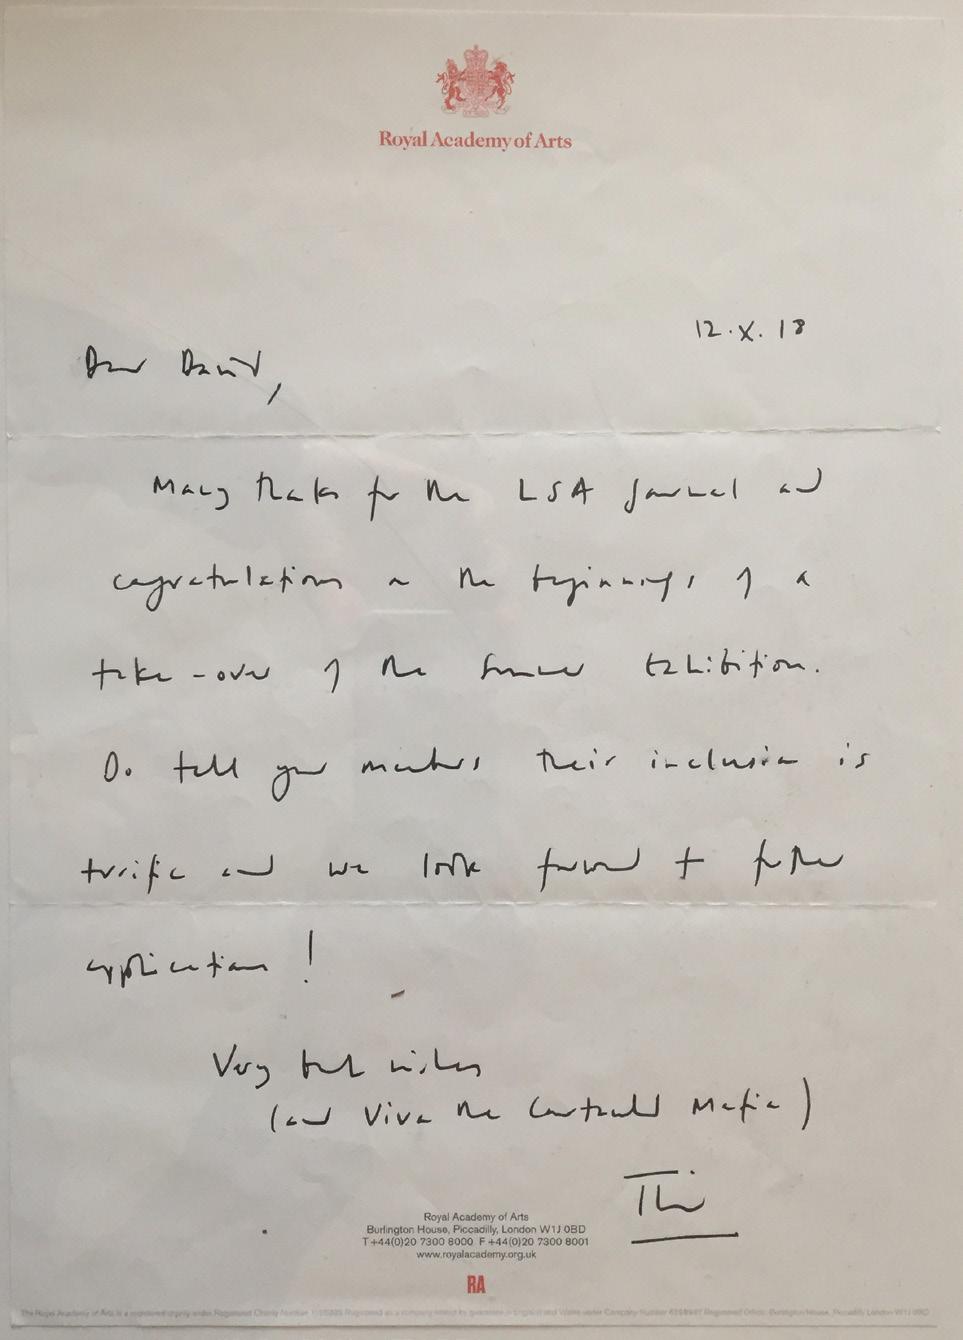 Royal Academy of Arts
12.X.18
Dear David,
Many thanks for the LSA Journal and
congratulations on the beginnings of a
take-over of the Summer Exhibition.
Do tell your members their inclusion is
terrific and we look forward to further
applications!
Very best wishes
(and Viva the Courtauld Mafia)
Royal Academy of Arts
Burlington House, Piccadilly, London W1J 0BD
T+44(0)20 7300 8000 F+44(0)20 7300 8001
www.royalacademy.org.uk
RA
The Royal Academy of Arts is a registered charity under Registered Charity Number Registered as a company limited by guarantee in England and Wales under Company Number Registered Office: Burlington House, Piccadilly London W1J 0BD